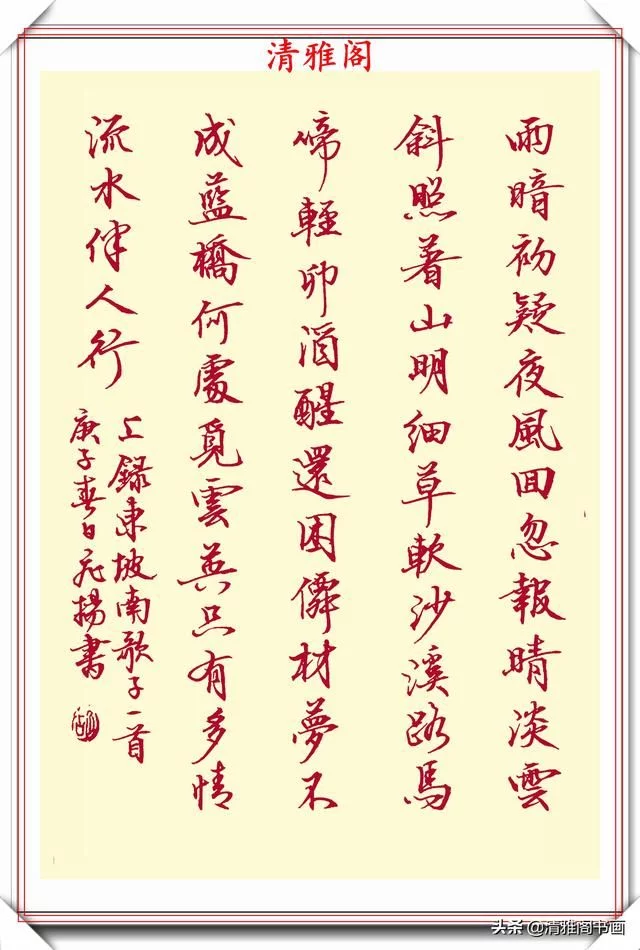 清雅阁
雨暗初疑夜風回忽報晴淡雲
斜照著山明細草軟沙溪路馬
啼輕卯酒醒還困僊材夢不
成藍橋何處覓雲英只有多情
流水伴人行
上錄東坡南歌子一首
庚子春日揚書
头条 @清雅阁书画